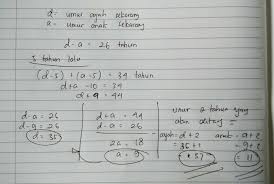 d = umur ayah sekarang
a = umur anak sekarang
d - a = 26 tahun
5 tahun lalu
(d-5) + (a-5) = 34 tahun
d+a -10 = 34
d+a = 44
d-a = 26
d-9 = 26
d = 35
d+a = 44
d-a = 26
2a = 18
a = 9
umur 2 tahun yang
akan datang =
ayah = d+2
= 35+2
= 37
anak = a+2
= 9+2
= 11